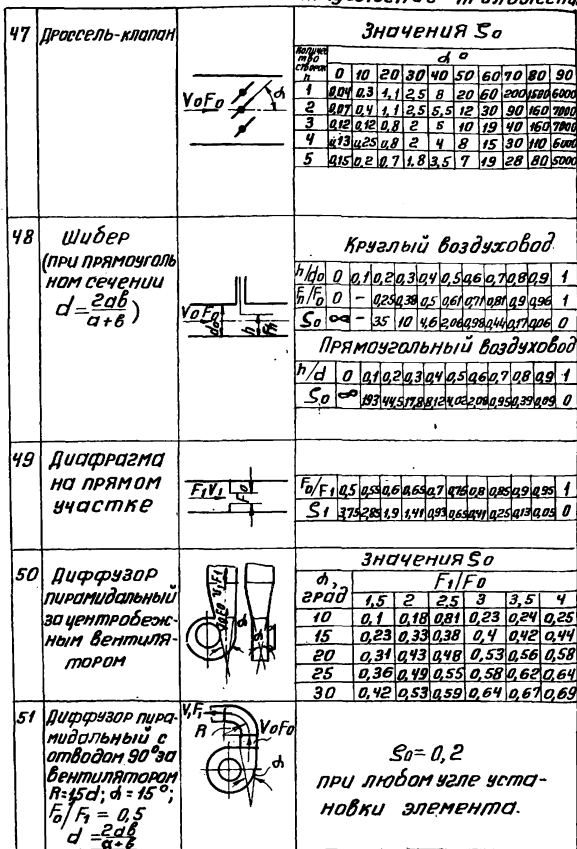 47 Дроссель-клапан
VoFo
α
Значения ζo
Количество створок n
α°
0 10 20 30 40 50 60 70 80 90
1 0,04 0,3 1,1 2,5 8 20 60 200 1500 6000
2 0,07 0,4 1,1 2,5 5,5 12 30 90 160 7000
3 0,12 0,12 0,8 2 5 10 19 40 160 7000
4 0,13 0,25 0,8 2 4 8 15 30 110 6000
5 0,15 0,2 0,7 1,8 3,5 7 19 28 80 5000
48 Шибер
(при прямоуголь
ном сечении
d = 2ав/а+в)
VoFo
do
h
Fh
Круглый воздуховод
h/do 0 0,1 0,2 0,3 0,4 0,5 0,6 0,7 0,8 0,9 1
Fh/Fo 0 - 0,25 0,38 0,5 0,61 0,71 0,81 0,9 0,96 1
ζo ∞ - 35 10 4,6 2,06 0,98 0,44 0,17 0,06 0
Прямоугольный воздуховод
h/d 0 0,1 0,2 0,3 0,4 0,5 0,6 0,7 0,8 0,9 1
ζo ∞ 193 44,5 17,8 8,12 4,02 2,08 0,95 0,39 0,09 0
49 Диафрагма
на прямом
участке
F1V1
Fo
Fo/F1 0,5 0,55 0,6 0,65 0,7 0,75 0,8 0,85 0,9 0,95 1
ζ1 3,75 2,85 1,9 1,41 0,93 0,65 0,41 0,25 0,13 0,05 0
50 Диффузор
пирамидальный
за центробеж-
ным вентиля-
тором
V1F1
VoFo
α
Значения ζo
α, град
F1/Fo
1,5 2 2,5 3 3,5 4
10 0,1 0,18 0,81 0,23 0,24 0,25
15 0,23 0,33 0,38 0,4 0,42 0,44
20 0,31 0,43 0,48 0,53 0,56 0,58
25 0,36 0,49 0,55 0,58 0,62 0,64
30 0,42 0,53 0,59 0,64 0,67 0,69
51 Диффузор пира-
мидальный с
отводом 90° за
вентилятором
R=1,5d; α = 15°;
Fo/F1 = 0,5
d = 2ав/а+в
V1F1
R
VoFo
α
ζo = 0,2
при любом угле уста-
новки элемента.